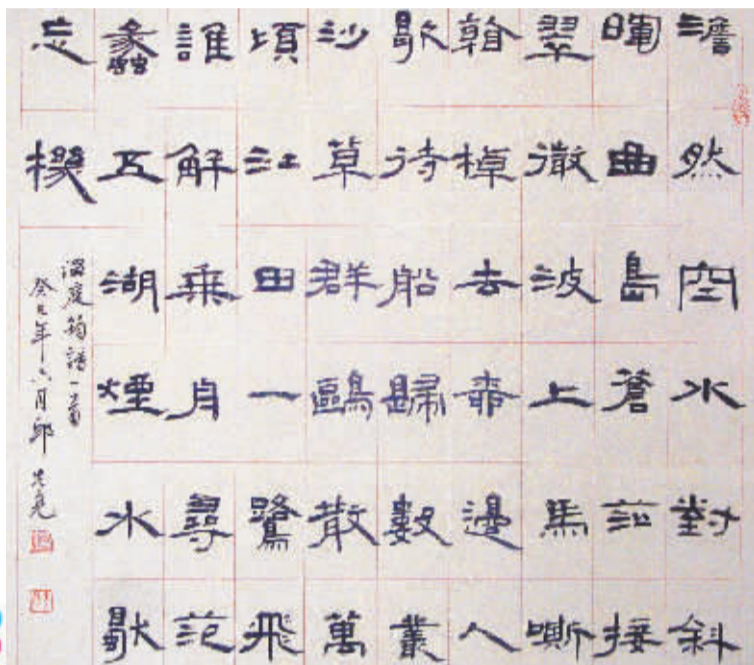 澹然空水對斜
暉曲島蒼茫接
翠微波上馬嘶
棹去柳邊人
歇待船歸數叢
沙草群鷗散萬
頃江田一鷺飛
誰解乘舟尋范
蠡五湖煙水獨
忘機
溫庭筠詩一首
癸巳年六月邱